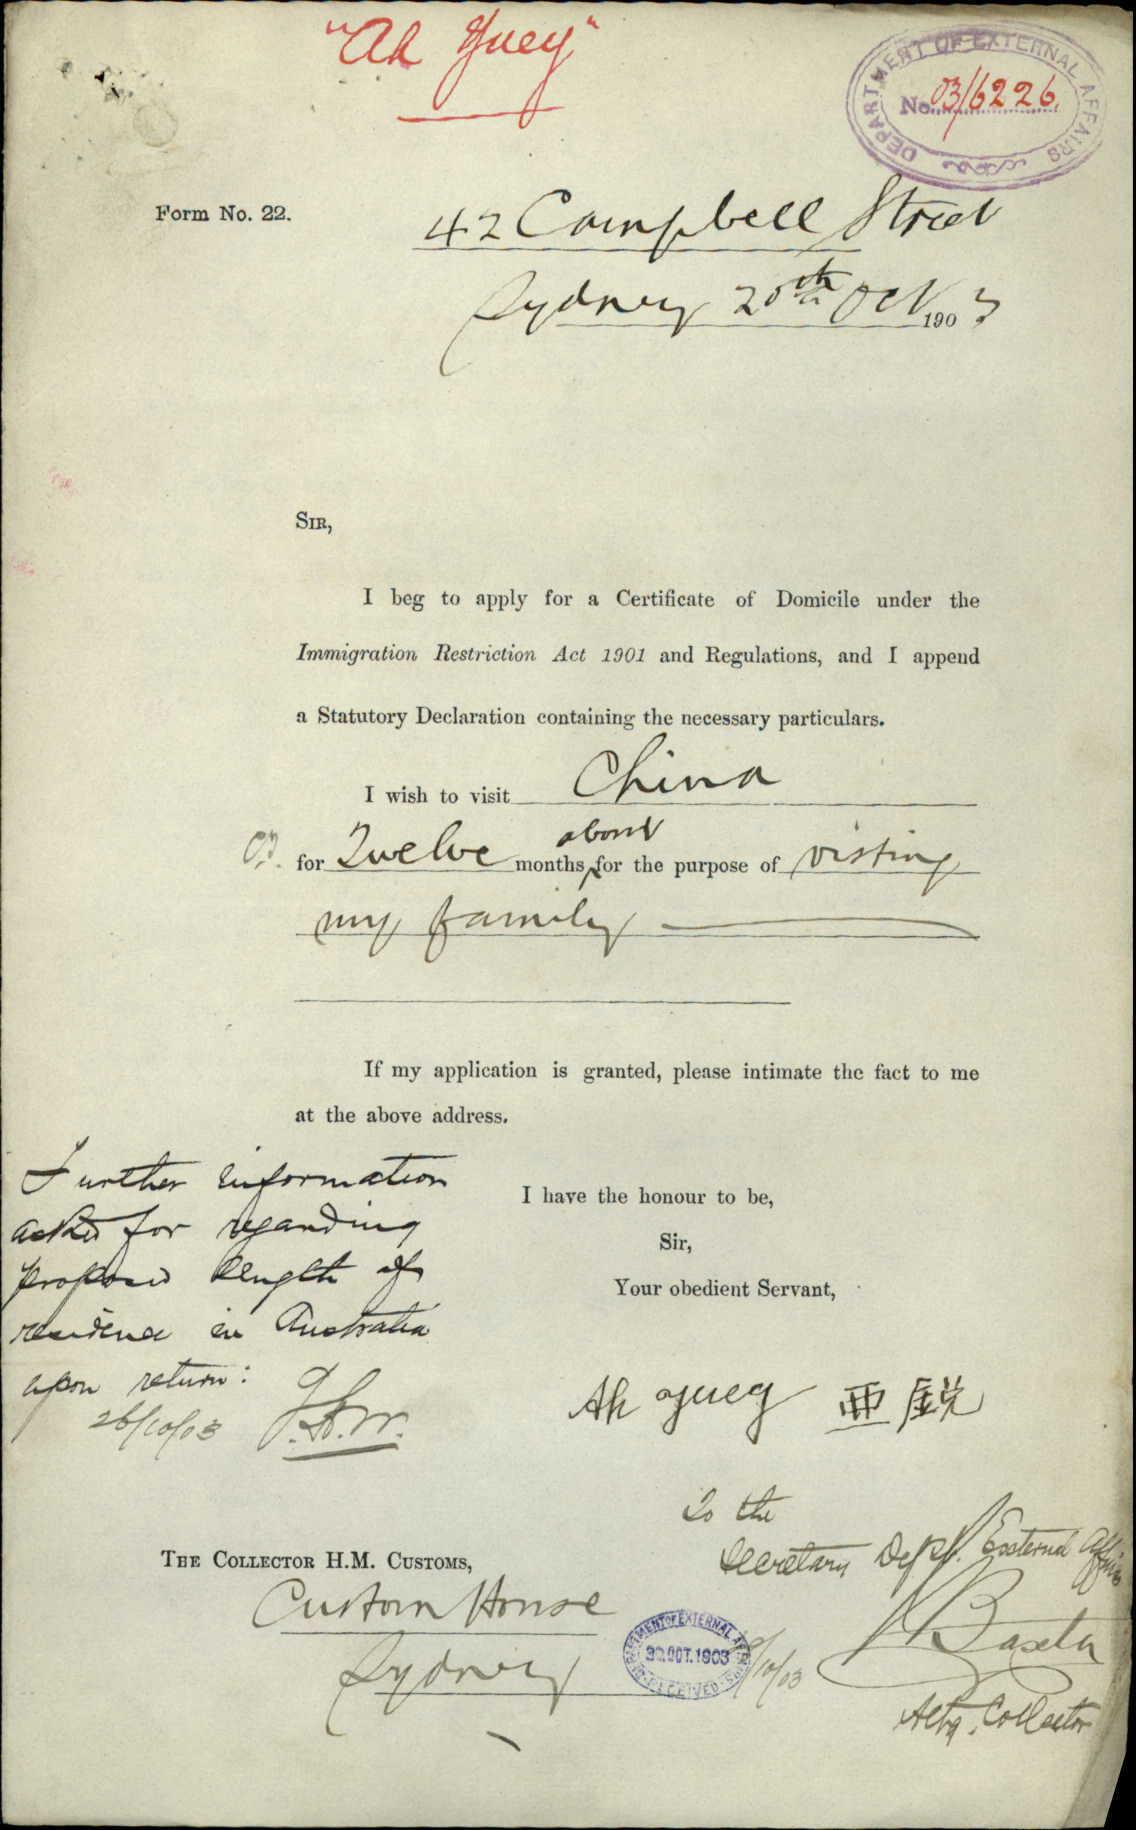 "Ah Yuey"
DEPARTMENT OF EXTERNAL AFFAIRS
No. 03/6226.
Form No. 22.
42 Campbell Street
Sydney 20th Oct 1903
SIR,
I beg to apply for a Certificate of Domicile under the
Immigration Restriction Act 1901 and Regulations, and I append
a Statutory Declaration containing the necessary particulars.
I wish to visit China
for Twelve months about for the purpose of visting
my family
If my application is granted, please intimate the fact to me
at the above address.
Further information
asked for regarding
proposed length of
residence in Australia
upon return:
26/10/03
I have the honour to be,
Sir,
Your obedient Servant,
Ah Yuey 亜鋭
To the
Secretary Dept. External Affairs
THE COLLECTOR H.M. CUSTOMS,
Custom House
Sydney
DEPARTMENT OF EXTERNAL AFFAIRS
30.OCT.1903
RECEIVED
/10/03
Baxter
Actg. Collector